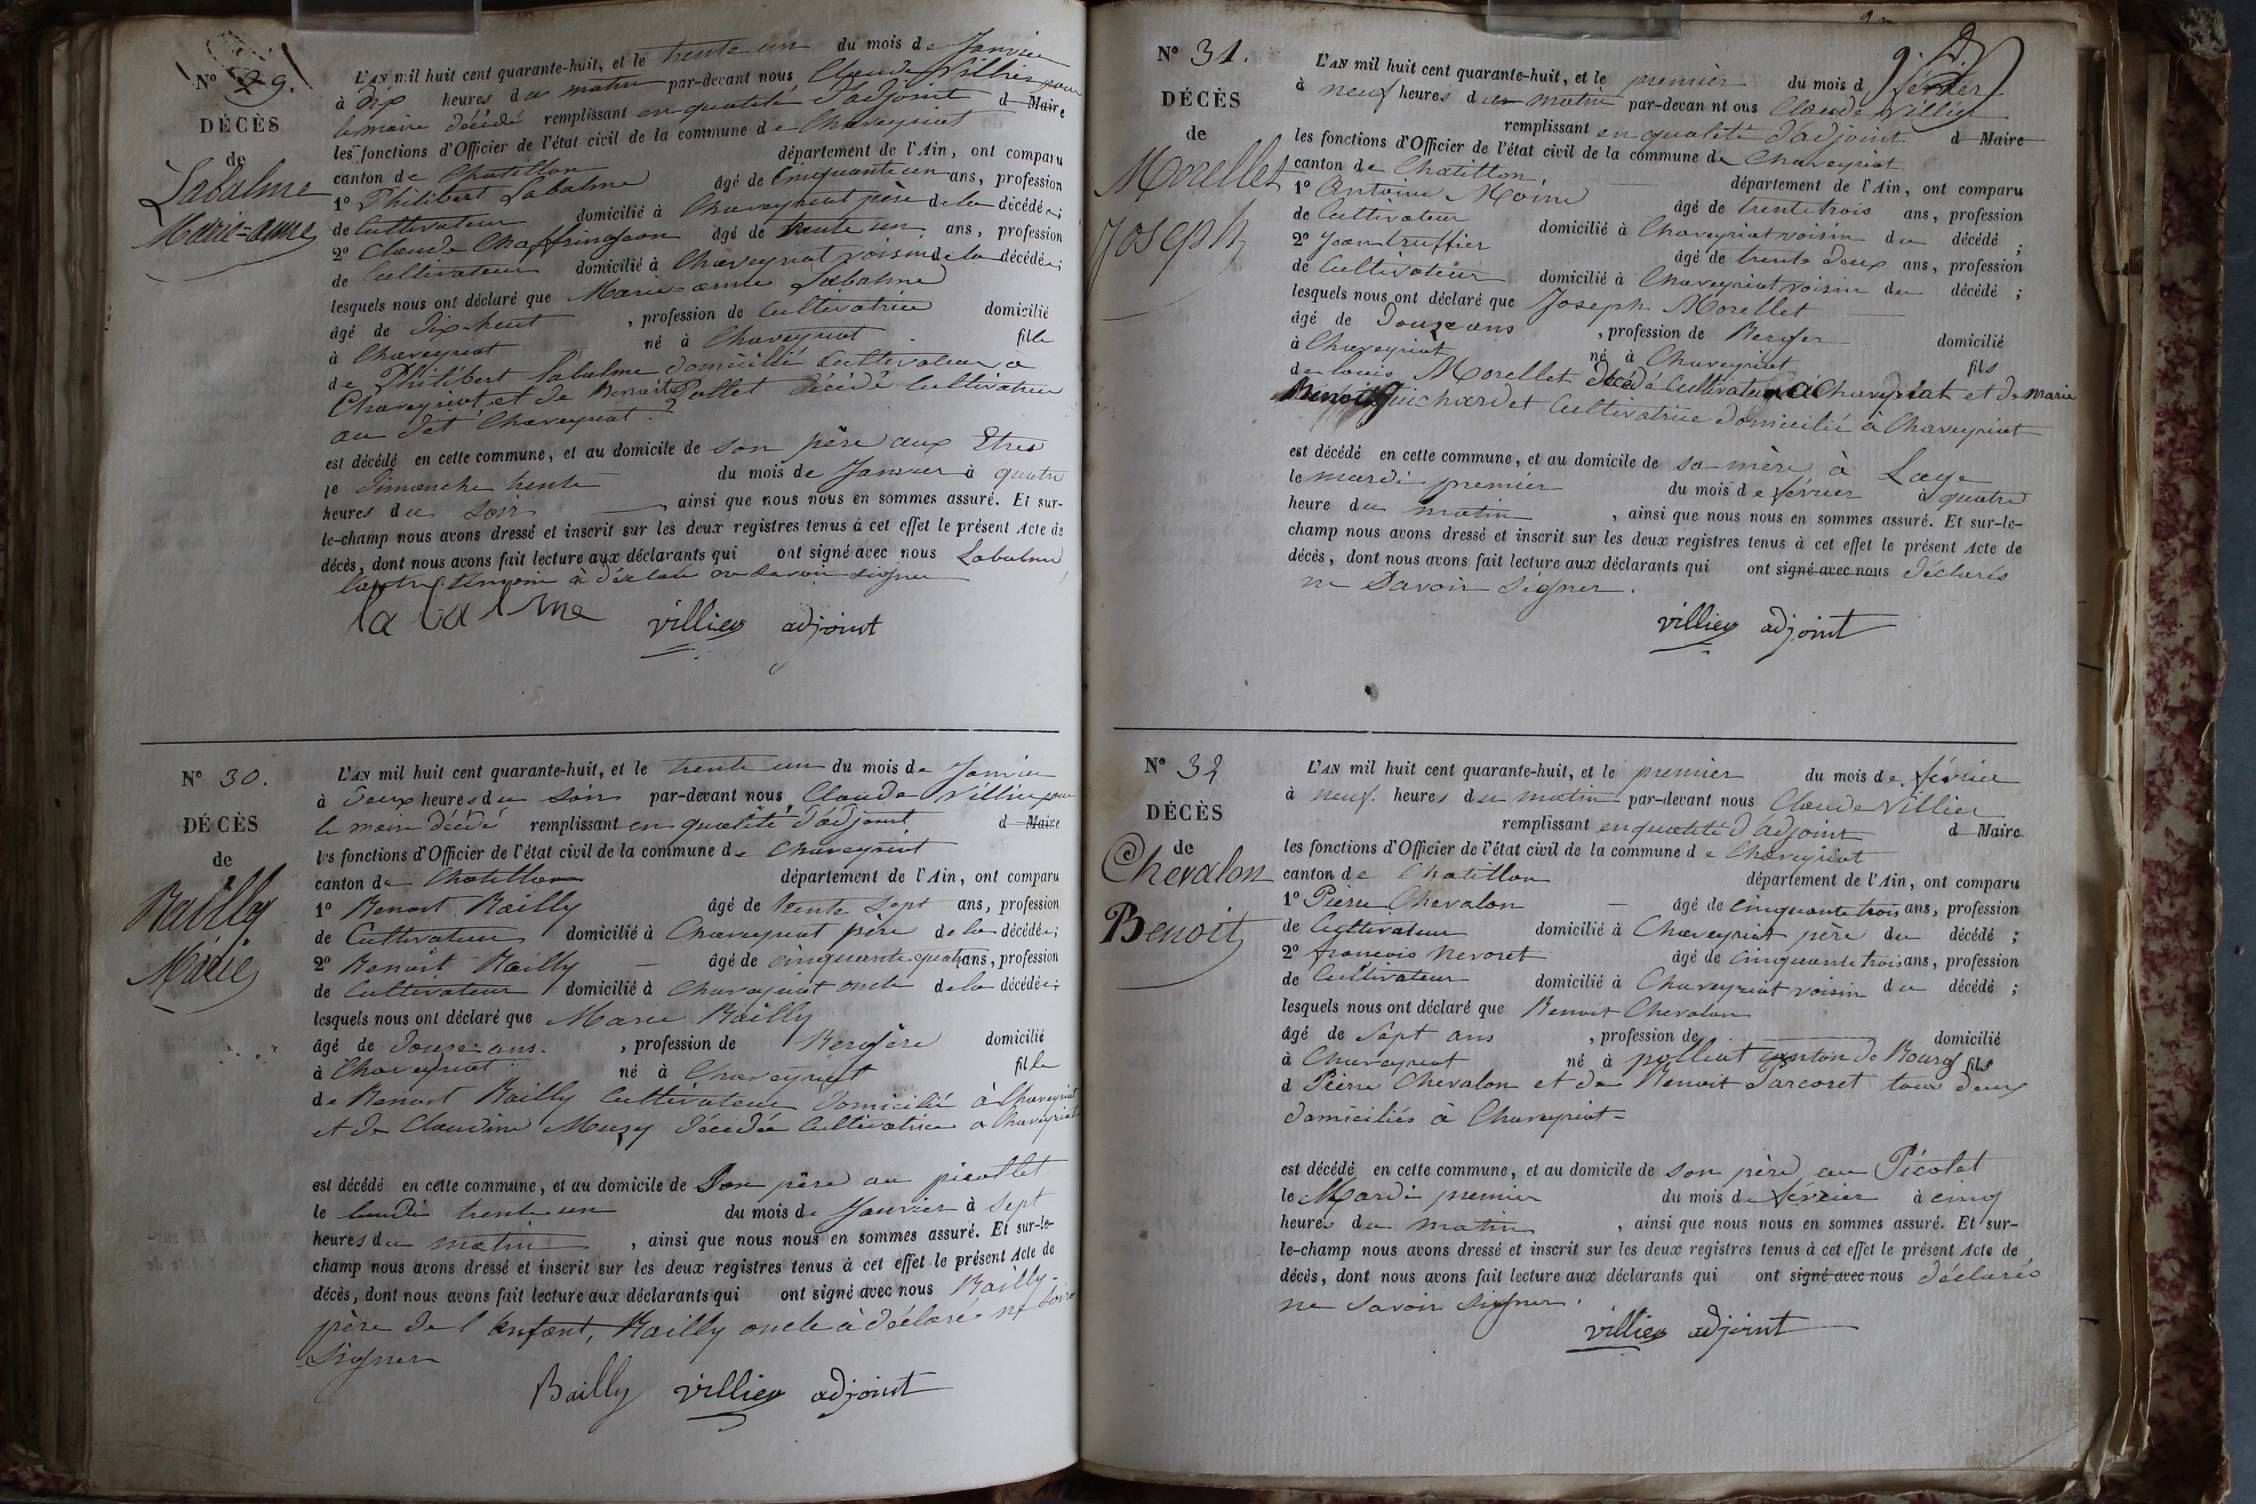 N° 29.
DÉCÈS
de
Labalme
Marie-anne
L'AN mil huit cent quarante-huit, et le trente un du mois de Janvier
à dix heures du matin par-devant nous Claude Villier pour
le maire décédé remplissant en qualité d'adjoint d Maire
les fonctions d'Officier de l'état civil de la commune de Chaveyriat
canton de Chatillon département de l'Ain, ont comparu
1° Philibert Labalme âgé de Cinquante un ans, profession
de Cultivateur domicilié à Chaveyriat père de la décédée;
2° Claude Chaffringeon âgé de trente un ans, profession
de Cultivateur domicilié à Chaveyriat voisin de la décédée;
lesquels nous ont déclaré que Marie-anne Labalme
âgé de Dix-huit , profession de Cultivatrice domicilié
à Chaveyriat né à Chaveyriat fille
de Philibert Labalme domicilié Cultivateur a
Chaveyriat et de Benoite Pollet décédé Cultivatrice
au dit Chaveyriat.
est décédé en cette commune, et au domicile de son père aux Etres
le Dimanche trente du mois de Janvier à quatre
heures du soir , ainsi que nous nous en sommes assuré. Et sur-
le-champ nous avons dressé et inscrit sur les deux registres tenus à cet effet le présent Acte de
décès, dont nous avons fait lecture aux déclarants qui ont signé avec nous Labalme
l'autre témoin à déclaré ne savoir signer
labalme villier adjoint
N° 30.
DÉCÈS
de
Bailly
Marie
L'AN mil huit cent quarante-huit, et le trente un du mois de Janvier
à Deux heures du Soir par-devant nous, Claude Villier pour
le maire décédé remplissant en qualité d'adjoint d Maire
les fonctions d'Officier de l'état civil de la commune de Chaveyriat
canton de Chatillon département de l'Ain, ont comparu
1° Benoit Bailly âgé de trente sept ans, profession
de Cultivateur domicilié à Chaveyriat père de la décédée;
2° Benoit Bailly âgé de cinquante quatre ans, profession
de Cultivateur domicilié à Chaveyriat oncle de la décédée;
lesquels nous ont déclaré que Marie Bailly
âgé de Douze ans. , profession de Bergère domicilié
à Chaveyriat né à Chaveyriat fille
de Benoit Bailly Cultivateur Domicilié à Chaveyriat
et de Claudine Musy décédée Cultivatrice a Chaveyriat
est décédé en cette commune, et au domicile de Son père au picollet
le lundi trente un du mois de Janvier à Sept
heures du matin , ainsi que nous nous en sommes assuré. Et sur-le-
champ nous avons dressé et inscrit sur les deux registres tenus à cet effet le présent Acte de
décès, dont nous avons fait lecture aux déclarants qui ont signé avec nous Bailly
père de l'enfant, Bailly oncle à déclaré ne savoir
signer
Bailly villier adjoint
N° 31.
DÉCÈS
de
Morellet
Joseph
L'AN mil huit cent quarante-huit, et le premier du mois d février
à neuf heures du matin par-devan nt ous Claude Villier
remplissant en qualité d'adjoint d Maire
les fonctions d'Officier de l'état civil de la commune de Chaveyriat
canton de Chatillon. département de l'Ain, ont comparu
1° Antoine Moine âgé de trente trois ans, profession
de Cultivateur domicilié à Chaveyriat voisin du décédé ;
2° Jean truffier âgé de trente deux ans, profession
de Cultivateur domicilié à Chaveyriat voisin du décédé ;
lesquels nous ont déclaré que Joseph Morellet
âgé de Douze ans , profession de Berger domicilié
à Chaveyriat né à Chaveyriat fils
de louis Morellet décédé Cultivateur à Chaveyriat et de marie
Guichardet Cultivatrice domicilié à Chaveyriat
est décédé en cette commune, et au domicile de sa mère à Laye
le mardi premier du mois de février à quatre
heure du matin , ainsi que nous nous en sommes assuré. Et sur-le-
champ nous avons dressé et inscrit sur les deux registres tenus à cet effet le présent Acte de
décès, dont nous avons fait lecture aux déclarants qui ont signé avec nous déclarés
ne Savoir Signer.
villier adjoint
N° 32
DÉCÈS
de
Chevalon
Benoit
L'AN mil huit cent quarante-huit, et le premier du mois de février
à neuf. heures du matin par-devant nous Claude Villier
remplissant en qualité d'adjoint d Maire
les fonctions d'Officier de l'état civil de la commune de Chaveyriat
canton de Chatillon département de l'Ain, ont comparu
1° Pierre Chevalon âgé de cinquante trois ans, profession
de Cultivateur domicilié à Chaveyriat père du décédé ;
2° francois Nevoret âgé de cinquante trois ans, profession
de Cultivateur domicilié à Chaveyriat voisin du décédé ;
lesquels nous ont déclaré que Benoit Chevalon
âgé de Sept ans , profession de domicilié
à Chaveyriat né à polliat canton de Bourg fils
d Pierre Chevalon et de Benoit Parcoret tous deux
domiciliés à Chaveyriat
est décédé en cette commune, et au domicile de son père au Picolet
le Mardi premier du mois de février à cinq
heures du matin , ainsi que nous nous en sommes assuré. Et sur-
le-champ nous avons dressé et inscrit sur les deux registres tenus à cet effet le présent Acte de
décès, dont nous avons fait lecture aux déclarants qui ont signé avec nous déclarés
ne savoir signer.
villier adjoint